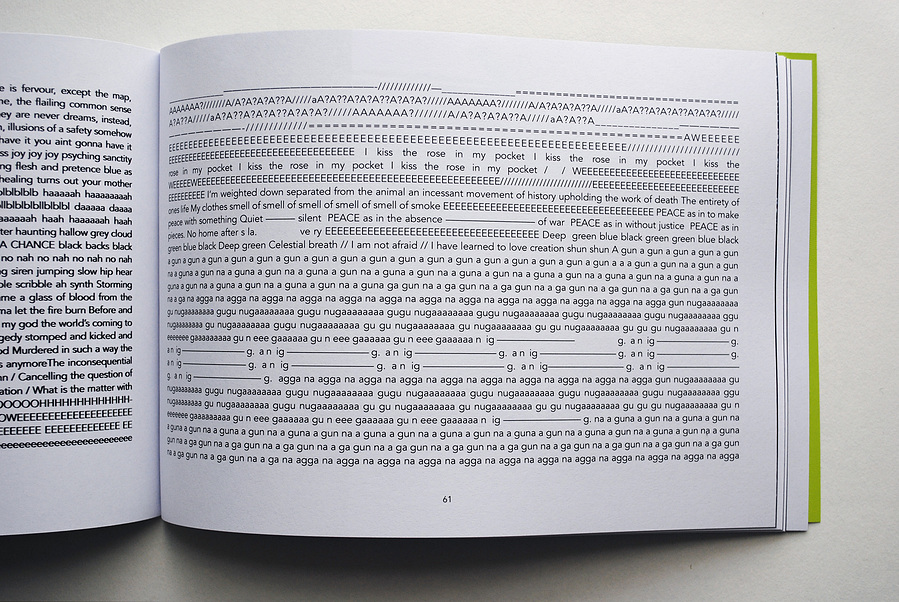 e is fervour, except the map,
ne, the flailing common sense
ey are never dreams, instead,
n, illusions of a safety somehow
have it you aint gonna have it
ss joy joy joy psyching sanctity
ng flesh and pretence blue as
healing turns out your mother
blblblblb haaaaah haaaaaaah
lblblblblblblbl daaaaa daaaa
aaaaaah haah haaaaaah haah
ter haunting hallow grey cloud
A CHANCE black backs black
no nah no nah no nah no nah
g siren jumping slow hip hear
ble scribble ah synth Storming
me a glass of blood from the
ma let the fire burn Before and
my god the world's coming to
gedy stomped and kicked and
od Murdered in such a way the
s anymoreThe inconsequential
nn / Cancelling the question of
ation / What is the matter with
OOOOOHHHHHHHHHHHHHH-
OWEEEEEEEEEEEEEEEEEEEEE
EEEEEEEE EEEEEEEEEEEEE EE
eeeeeeeeeeeeeeeeeeeeeeeee
EEEEEEEEEEEEEEEEEEEEEEEEEEEEEEEEEEE I kiss the rose in my pocket I kiss the rose in my pocket I kiss the
rose in my pocket I kiss the rose in my pocket I kiss the rose in my pocket / / WEEEEEEEEEEEEEEEEEEEEEEEEE
EEEEEEEEEE I'm weighted down separated from the animal an incessant movement of history upholding the work of death The entirety of
ones life My clothes smell of smell of smell of smell of smell of smoke EEEEEEEEEEEEEEEEEEEEEEEEEEEEEEEEEEE PEACE as in to make
peace with something Quiet ——— silent PEACE as in the absence ————————— of war PEACE as in without justice PEACE as in
pieces. No home after s la. ve ry EEEEEEEEEEEEEEEEEEEEEEEEEEEEEEEEEEE Deep green blue black green green blue black
green blue black Deep green Celestial breath // I am not afraid // I have learned to love creation shun shun A gun a gun a gun a gun
a gun a gun a gun a gun a gun a gun a gun a gun a gun a gun a gun a gun a gun a gun a a a a gun na a gun a gun
na a guna a gun a guna a gun na a guna a gun na a guna a gun na a guna a gun a guna a gun na a guna a gun na a
guna a gun na a ga gun na a ga gun na a ga gun na a ga gun na a ga gun na a ga gun na a ga gun na a ga gun na
na a ga na agga na agga na agga na agga na agga na agga na agga na agga na agga na agga gun nugaaaaaaaa
gu nugaaaaaaaa gugu nugaaaaaaaa gugu nugaaaaaaaa gugu nugaaaaaaaa gugu nugaaaaaaaa gugu nugaaaaaaaa ggu
nugaaaaaaaa gu nugaaaaaaaa gugu nugaaaaaaaa gu gu nugaaaaaaaa gu gu nugaaaaaaaa gu gu gu nugaaaaaaaa gu n
eeeeeee gaaaaaaa gu n eee gaaaaaa gu n eee gaaaaaa gu n eee gaaaaaa n ig ————————— g. an ig ————————— g.
an ig ————————— g. a n ig ————————— g. a n ig ————————— g. a n ig ————————— g. an ig ————————— g.
a n ig ————————— g. an ig ————————— g. an ig ————————— g. an ig ————————— g. an ig —————————
g. an ig ————————— g. agga na agga na agga na agga na agga na agga na agga na agga na agga gun nugaaaaaaaa gu
nugaaaaaaaa gugu nugaaaaaaaa gugu nugaaaaaaaa gugu nugaaaaaaaa gugu nugaaaaaaaa gugu nugaaaaaaaa ggu
nugaaaaaaaa gu nugaaaaaaaa gugu nugaaaaaaaa gu gu nugaaaaaaaa gu gu nugaaaaaaaa gu gu gu nugaaaaaaaa gu n
eeeeeee gaaaaaaaa gu n eee gaaaaaa gu n eee gaaaaaa gu n eee gaaaaaa n ig ————————— g. na a guna a gun a guna a gun na
a guna a gun na a guna a gun a guna a gun na a guna a gun na a guna a gun na a guna a gun a guna a gun na a guna a gun
gun na a ga gun na a ga gun na a ga gun na a ga gun na a ga gun na a ga gun na a ga gun na a ga gun na a ga gun
na a ga gun na a ga gun na a ga na agga na agga na agga na agga na agga na agga na agga na agga na agga na agga
61